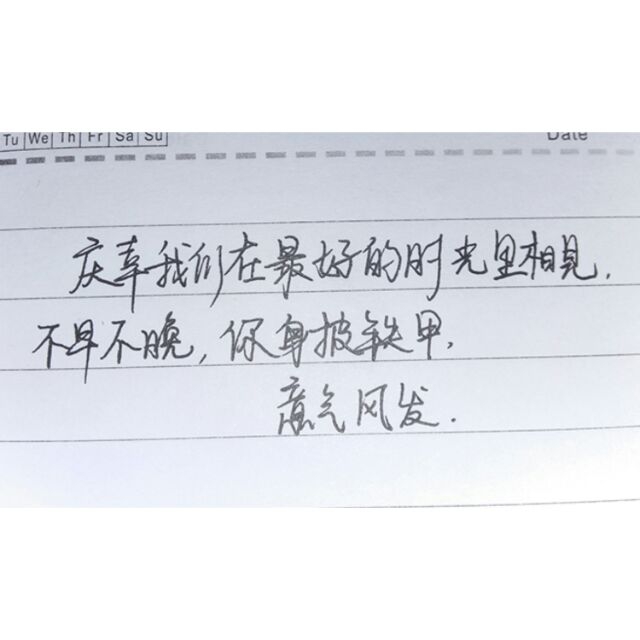 Tu We Th Fr Sa Su Date
庆幸我们在最好的时光里相見.
不早不晚,你身披铁甲.
意气风发.